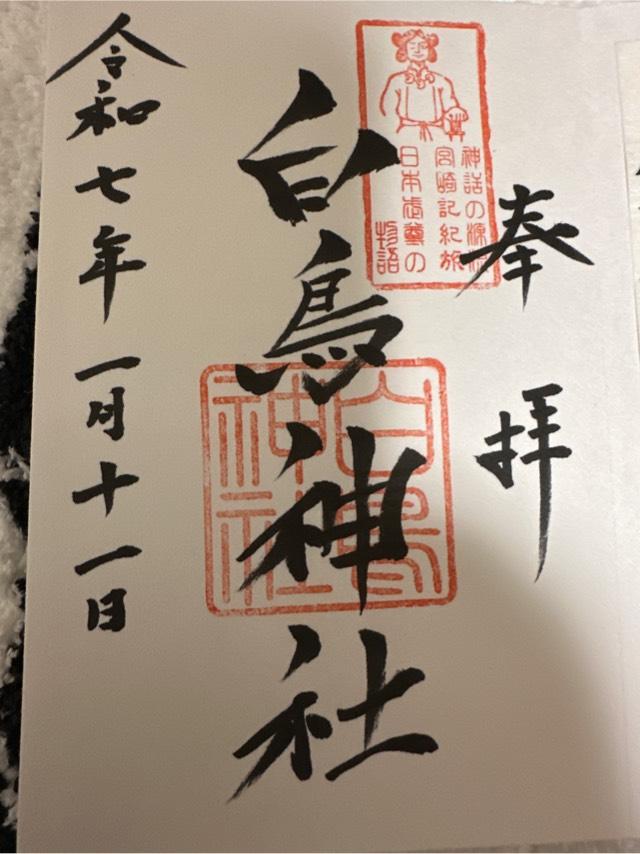 奉拝
神話の源流
宮崎記紀旅
日本武尊の
物語
白鳥神社
白鳥
神社
令和七年一月十一日